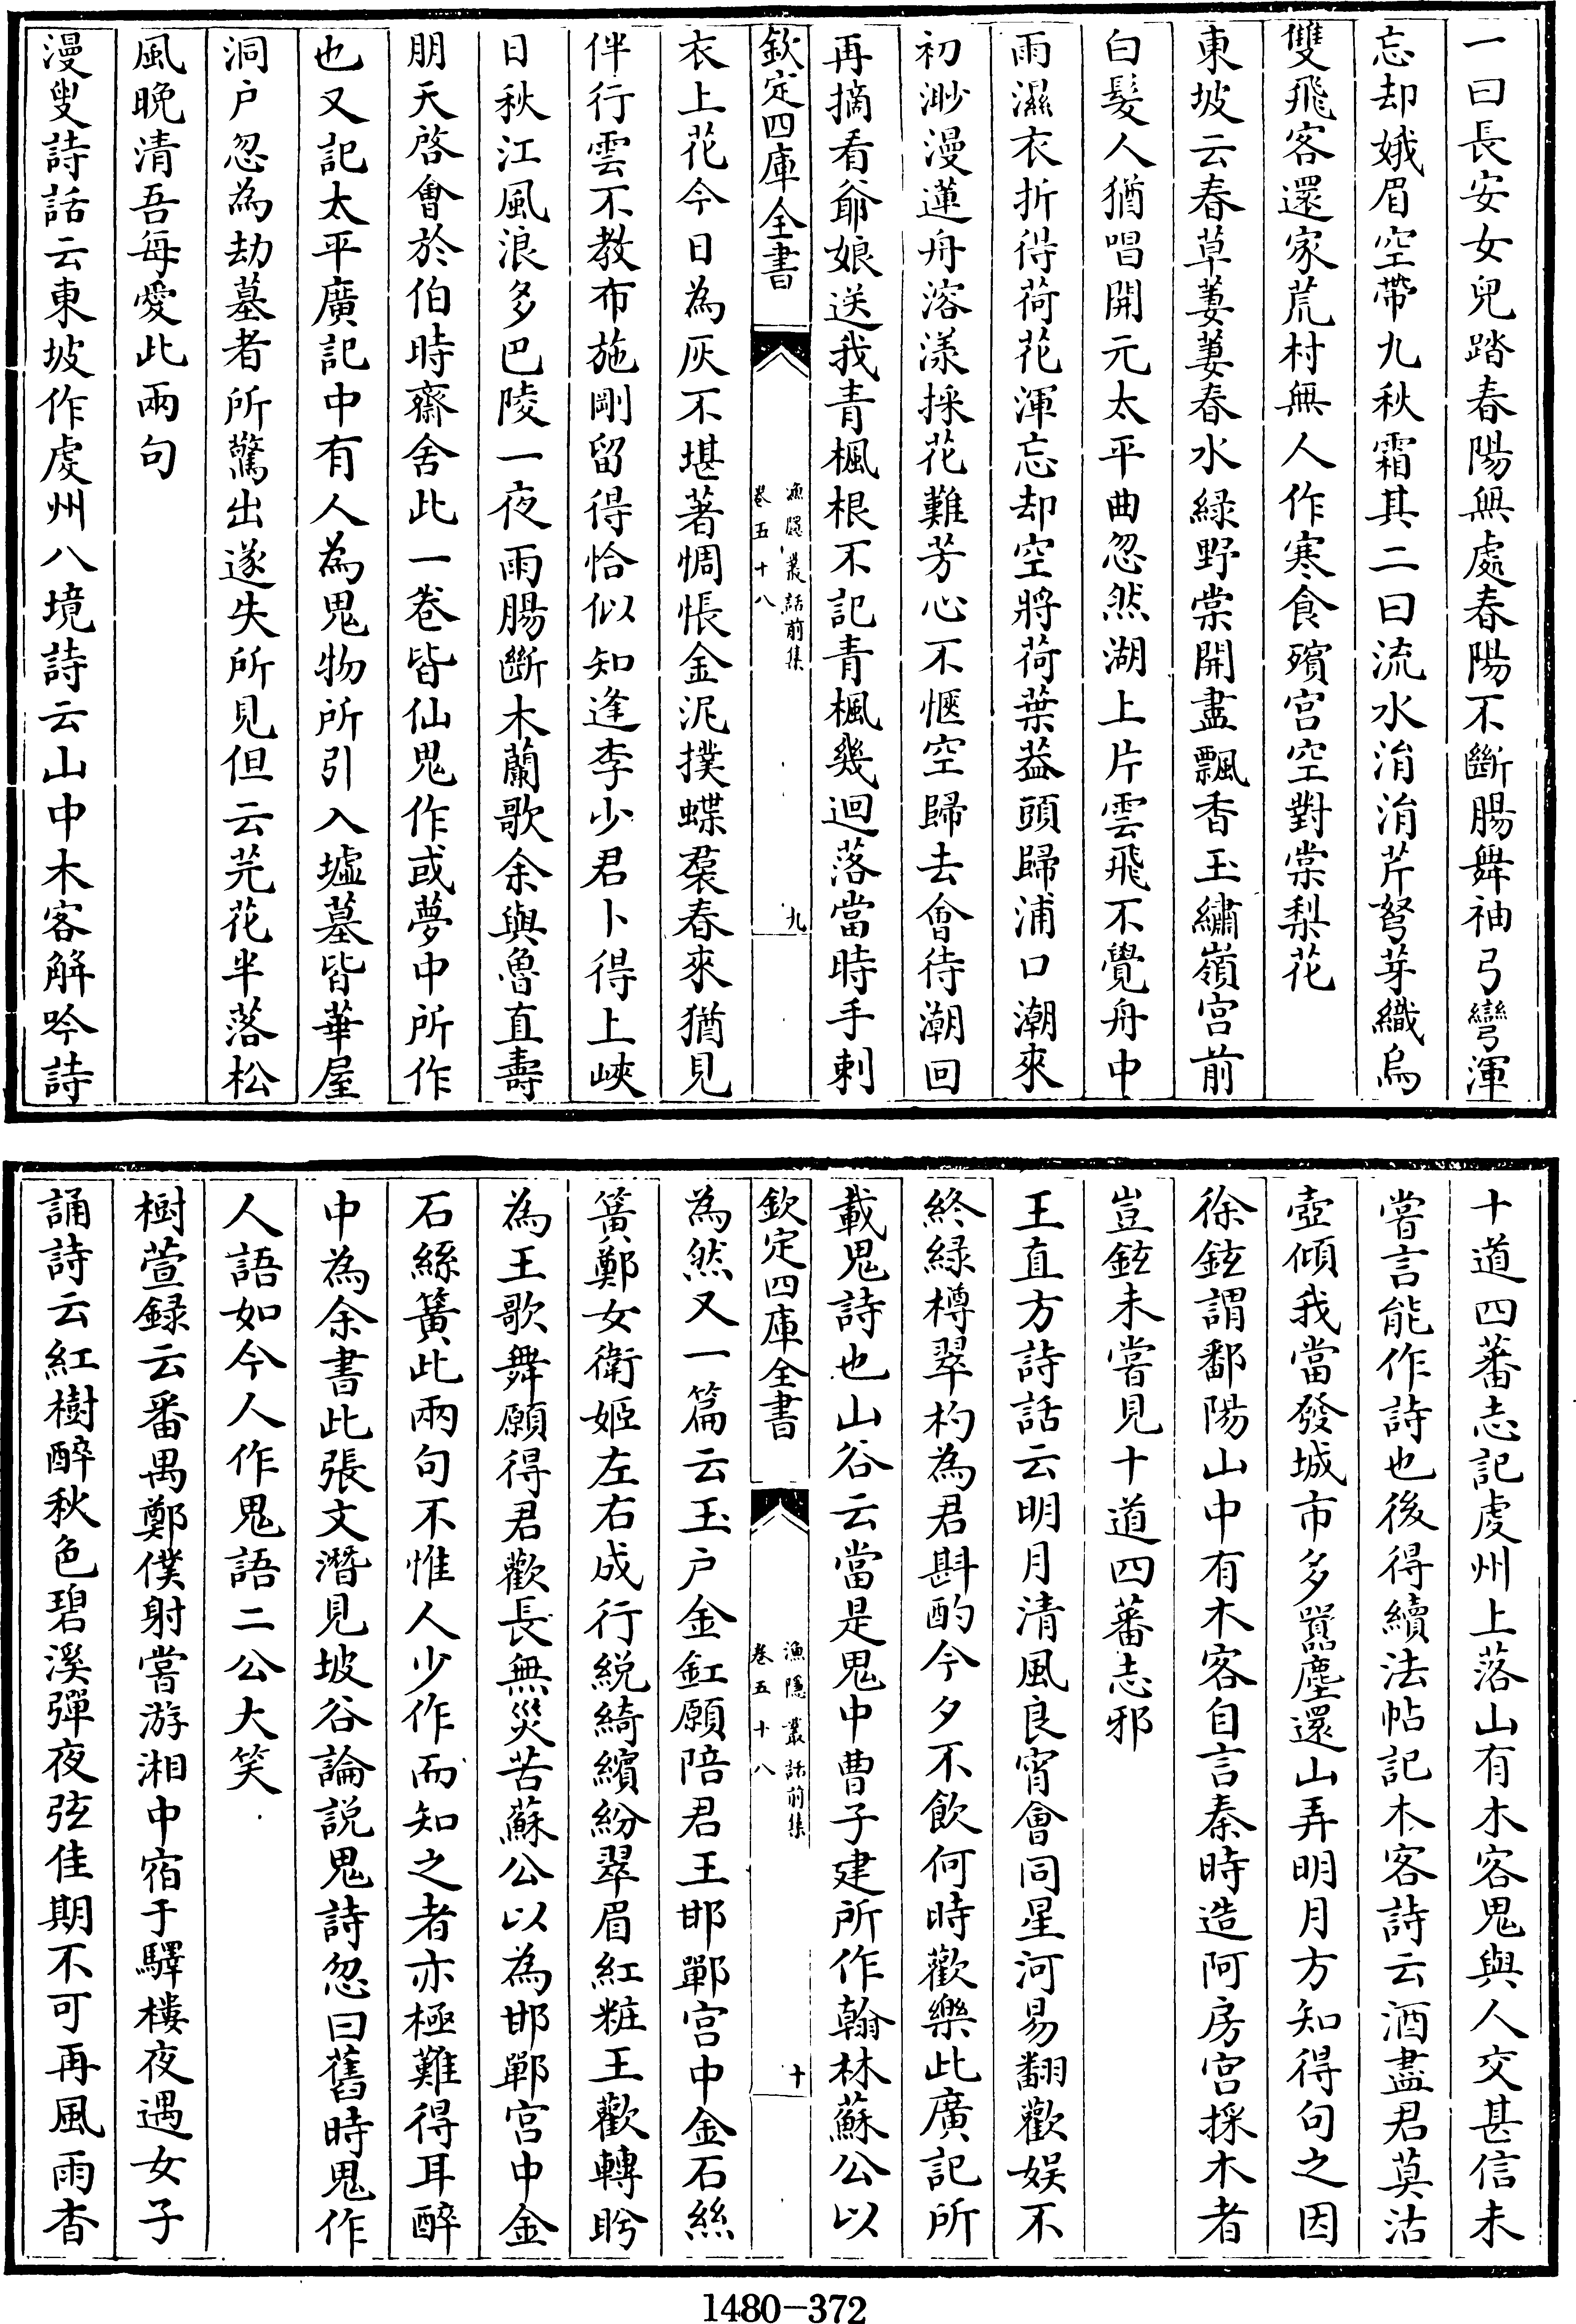 一曰長安女兒踏春陽無處春陽不斷腸舞袖弓彎渾
忘却娥眉空帶九秋霜其二曰流水涓涓芹努芽織烏
雙飛客還家荒村無人作寒食殯宫空對棠梨花
東坡云春草萋萋春水緑野棠開盡飄香玉繡嶺宫前
白髮人猶唱開元太平曲忽然湖上片雲飛不覺舟中
雨濕衣折得荷花渾忘却空將荷葉蓋頭歸浦口潮來
初渺漫蓮舟溶漾採花難芳心不愜空歸去會待潮回
再摘看爺娘送我青楓根不記青楓幾迴落當時手刺
欽定四庫全書
漁隠叢話前集
卷五十八
九
衣上花今日為灰不堪著惆悵金泥撲蝶裠春來猶見
伴行雲不教布施剛留得恰似知逢李少君卜得上峽
日秋江風浪多巴陵一夜雨腸斷木蘭歌余與魯直壽
朋天啓會於伯時齋舍此一卷皆仙鬼作或夢中所作
也又記太平廣記中有人為鬼物所引入墟墓皆華屋
洞户忽為劫墓者所驚出遂失所見但云芫花半落松
風晚清吾每愛此兩句
漫叟詩話云東坡作虔州八境詩云山中木客解吟詩
十道四蕃志記虔州上落山有木客鬼與人交甚信未
嘗言能作詩也後得續法帖記木客詩云酒盡君莫沽
壺傾我當發城市多囂塵還山弄明月方知得句之因
徐鉉謂鄱陽山中有木客自言秦時造阿房宫採木者
豈鉉未嘗見十道四蕃志邪
王直方詩話云明月清風良宵會同星河易翻歡娱不
終緑樽翠杓為君斟酌今夕不飲何時歡樂此廣記所
載鬼詩也山谷云當是鬼中曹子建所作翰林蘇公以
欽定四庫全書
漁隠叢話前集
卷五十八
十
為然又一篇云玉户金釭願陪君王邯鄲宫中金石絲
簧鄭女衛姬左右成行紈綺繽紛翠眉紅粧王歡轉眄
為王歌舞願得君歡長無災苦蘇公以為邯鄲宫中金
石絲簧此兩句不惟人少作而知之者亦極難得耳醉
中為余書此張文潛見坡谷論説鬼詩忽曰舊時鬼作
人語如今人作鬼語二公大笑
樹萱録云番禺鄭僕射嘗游湘中宿于驛樓夜遇女子
誦詩云紅樹醉秋色碧溪彈夜弦佳期不可再風雨杳
1480-372